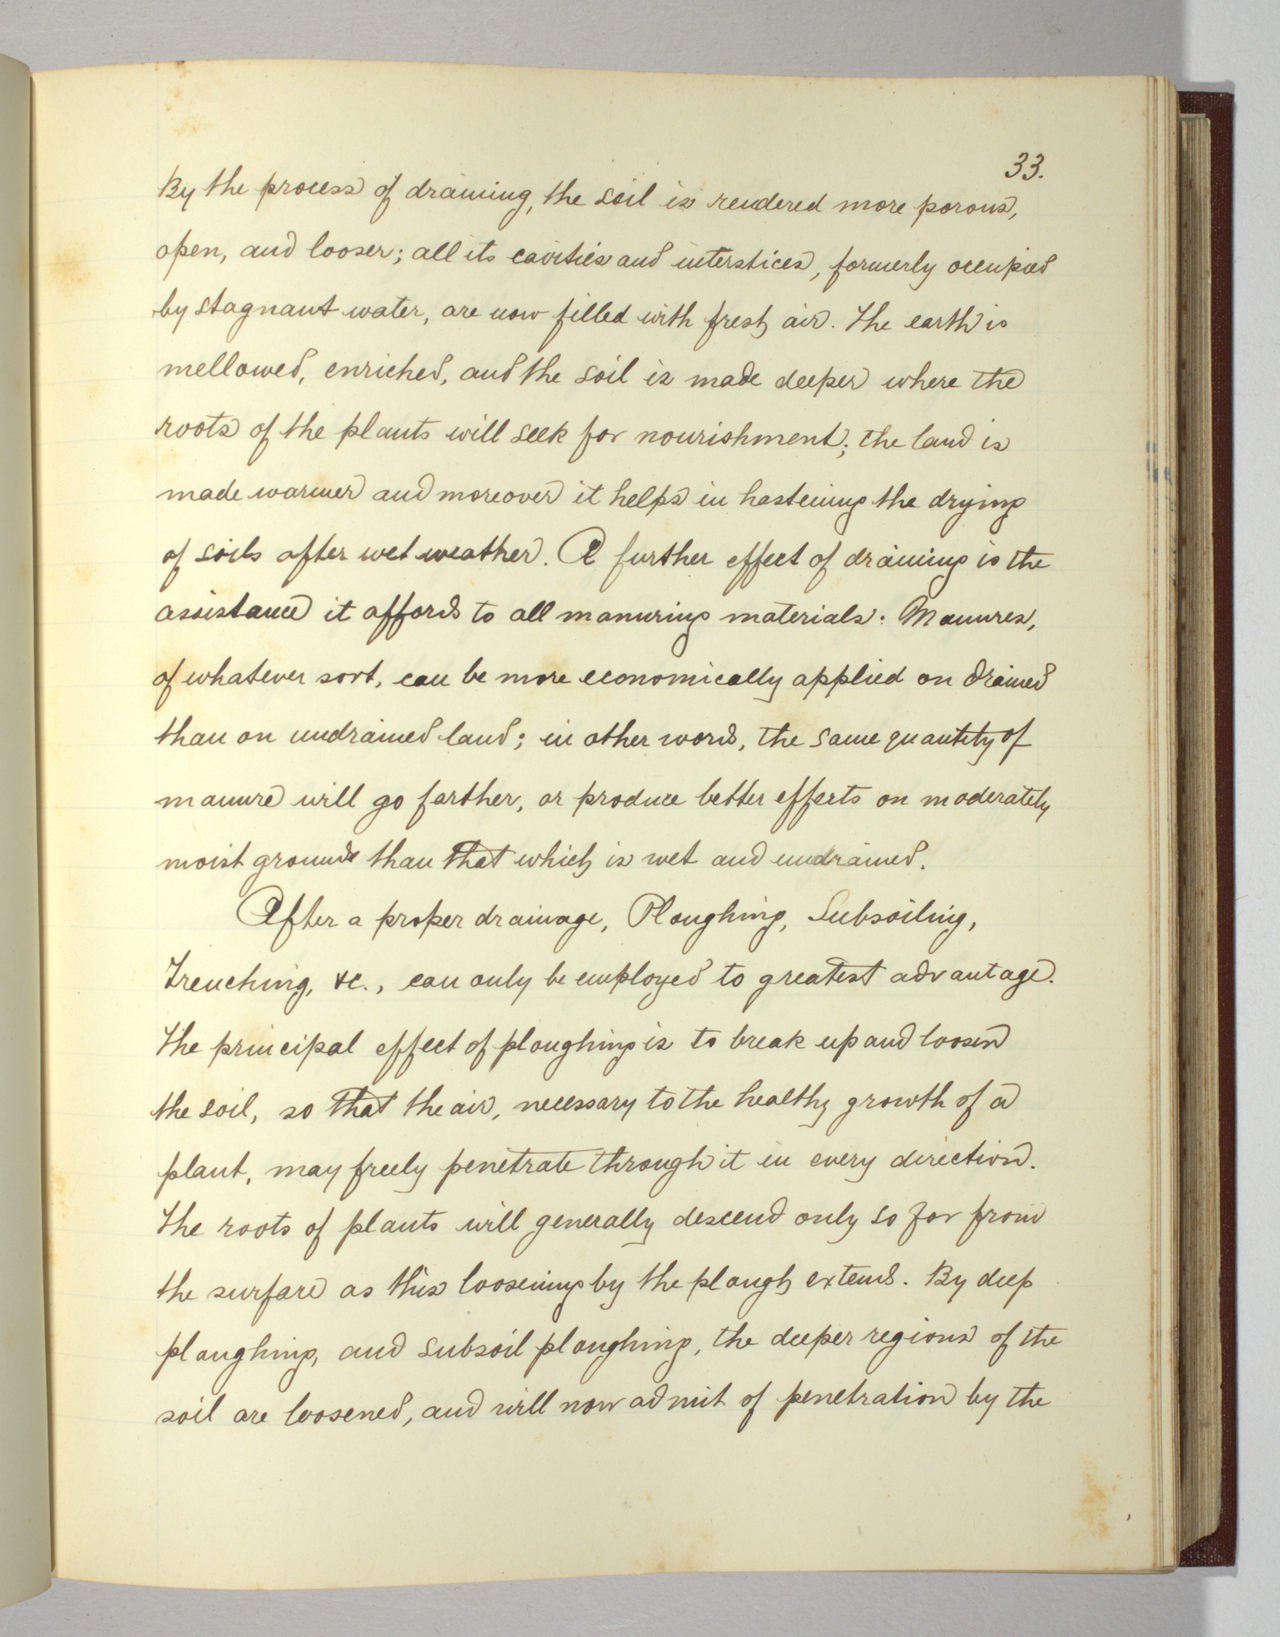 33.
By the process of draining, the soil is rendered more porous,
open, and looser; all its cavities and interstices, formerly occupied
by stagnant water, are now filled with fresh air. The earth is
mellowed, enriched, and the soil is made deeper where the
roots of the plants will seek for nourishment; the land is
made warmer and moreover it helps in hastening the drying
of soils after wet weather. A further effect of draining is the
assistance it affords to all manuring materials: Manures,
of whatever sort, can be more economically applied on drained
than on undrained land; in other words, the same quantity of
manure will go farther, or produce better effects on moderately
moist grounds than that which is wet and undrained.
After a proper drainage, Ploughing, Subsoiling,
Trenching, &c., can only be employed to greatest advantage.
The principal effect of ploughing is to break up and loosen
the soil, so that the air, necessary to the healthy growth of a
plant, may freely penetrate through it in every direction.
The roots of plants will generally descend only so far from
the surface as this loosening by the plough extends. By deep
ploughing, and subsoil ploughing, the deeper regions of the
soil are loosened, and will now admit of penetration by the